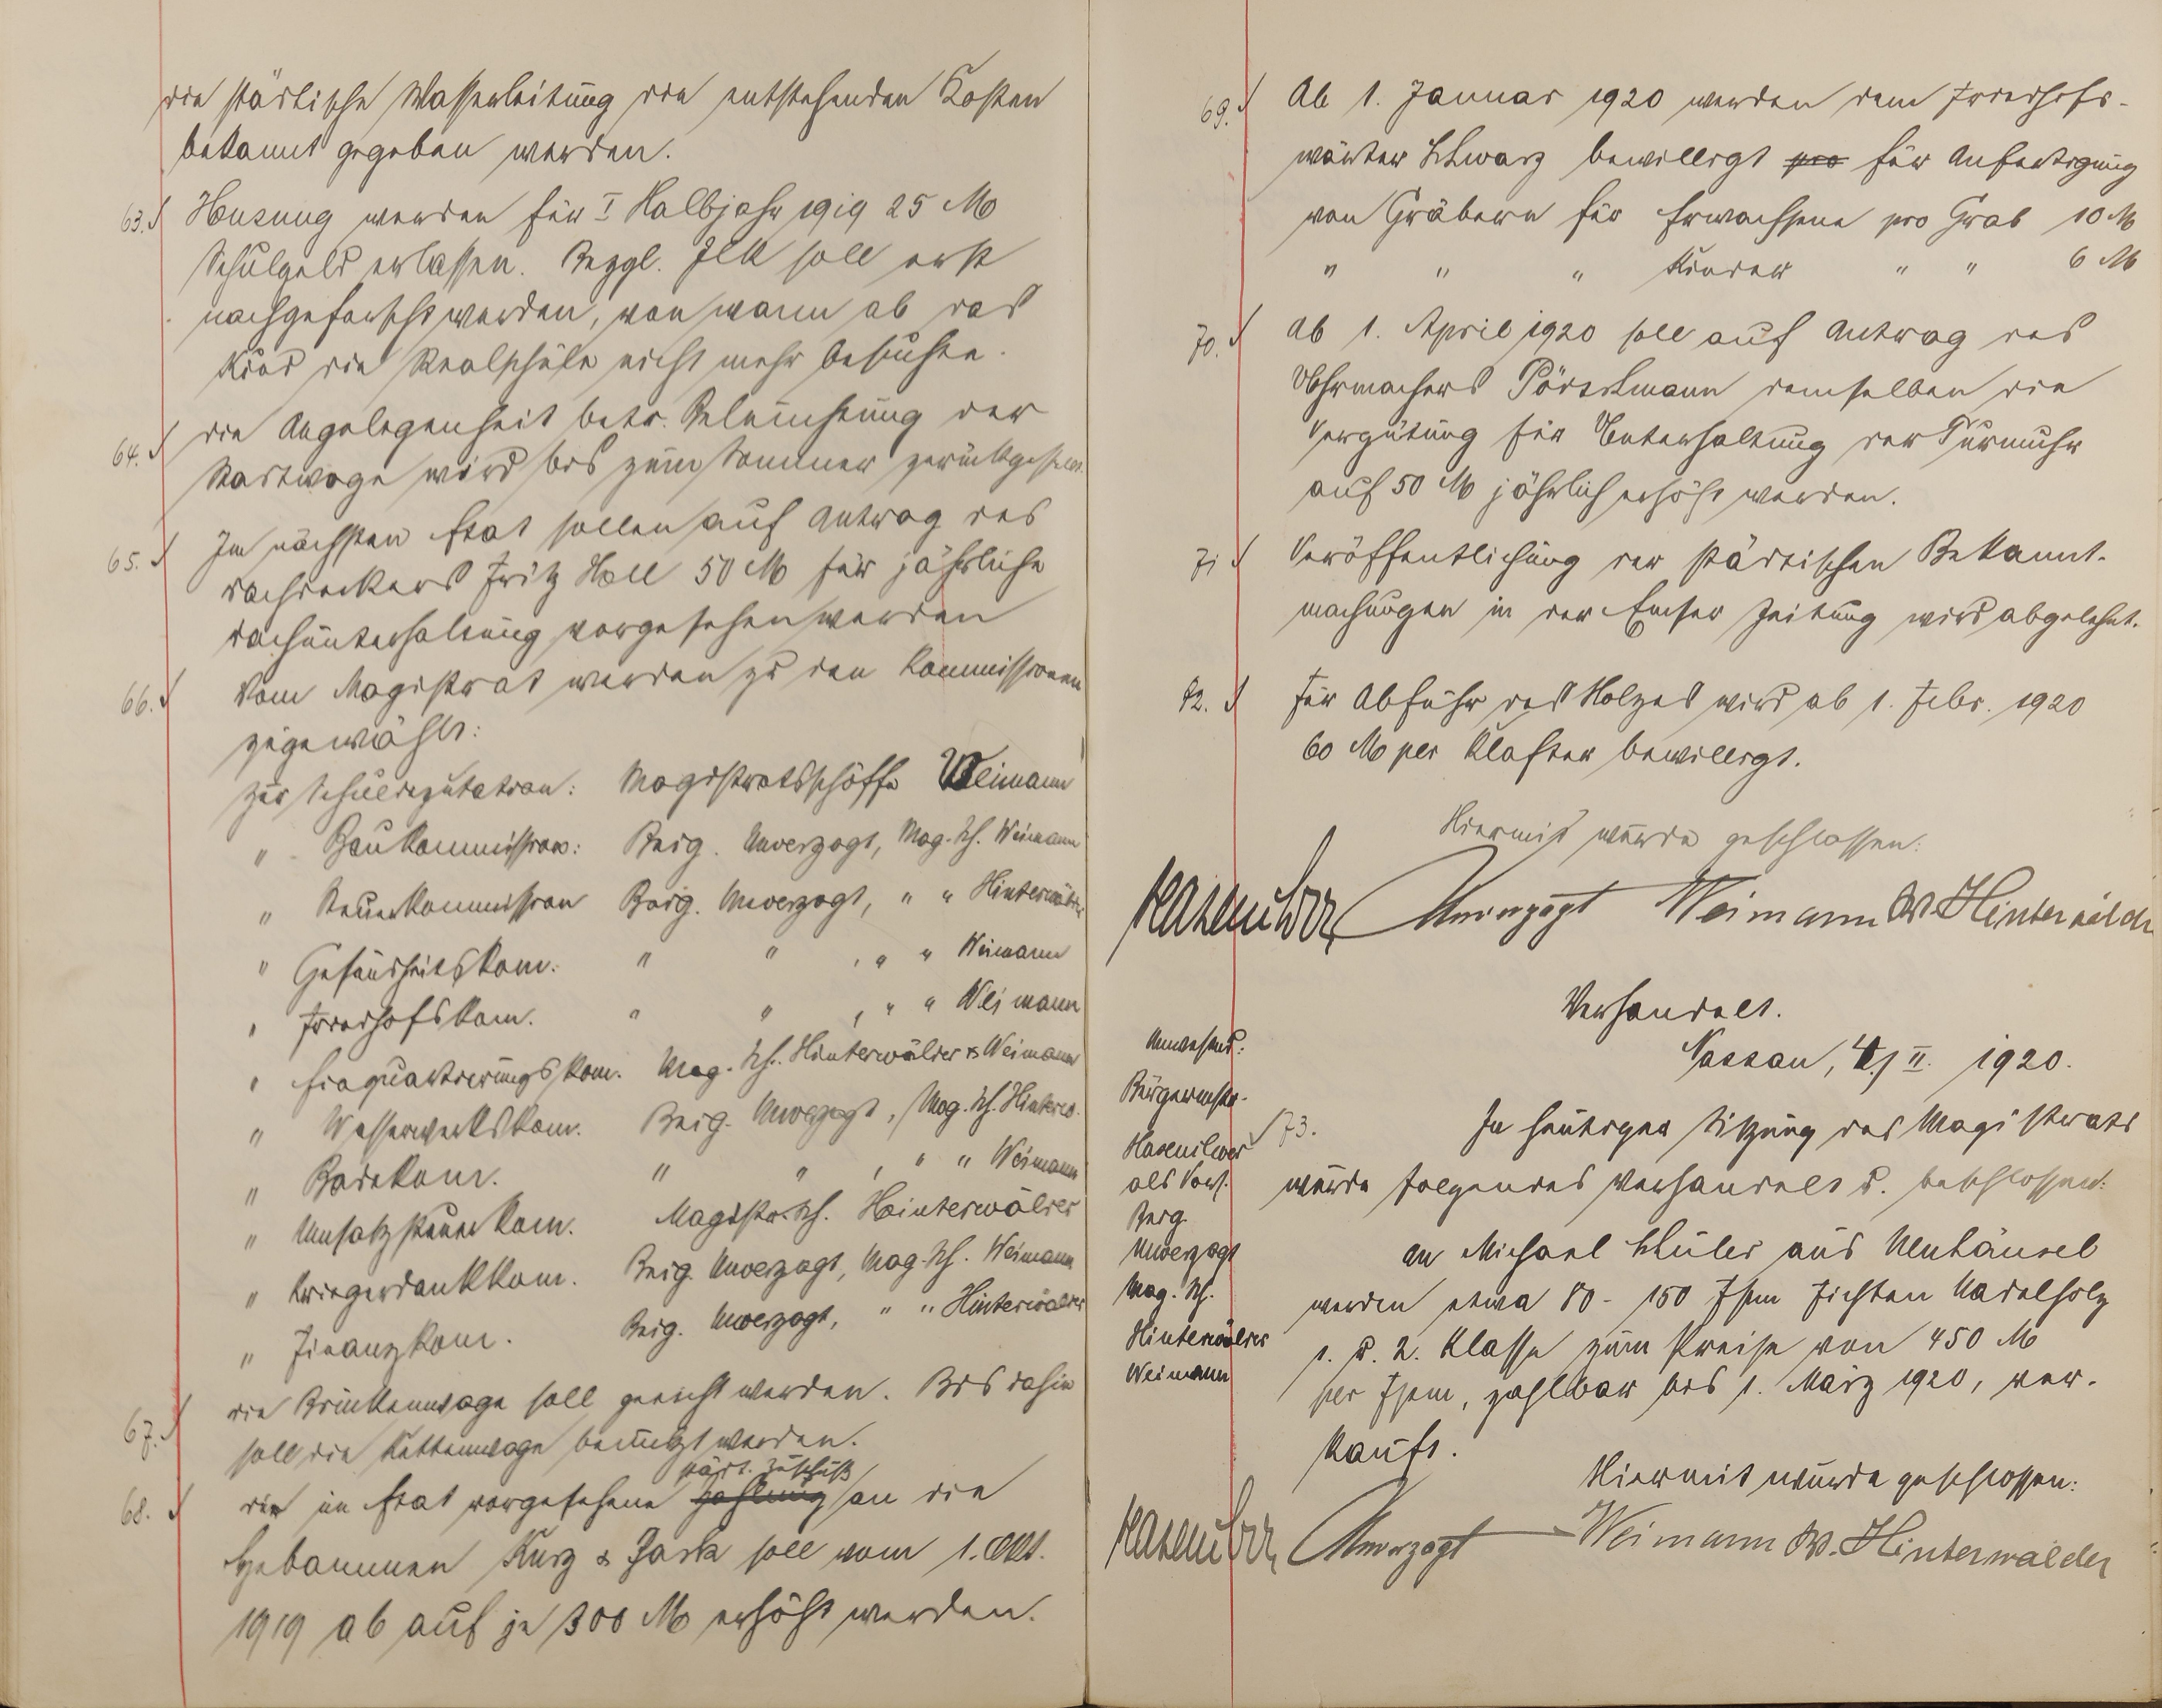 die städtische Wasserleitung die entstehenden Kosten
bekannt gegeben werden.
63. Henzung werden für I Halbjahr 1919 25 M
Schulgeld erlassen. Bezgl. Illi soll erst
nachgeforscht werden, von wann ab das
Kind die Realschule nicht mehr besuchte.
64. die Angelegenheit betr. Beleuchtung der
Stadtwage wird bis zum Sommer zurückgestellt.
65. Im nächsten Etat sollen auf Antrag des
Dachdeckers Fritz Holl 50 M für jährliche
Dachunterhaltung vorgesehen werden
66. Vom Magistrat werden zu den Kommissionen
zugewählt:
zur Schuldeputation: Magistratsschöffe Weimann
" Baukommission: Beig. Unverzagt, Mag. Sch. Weimann
" Steuerkommission Beig. Unverzagt, " " Hinterwälder
" Gesundheitskom. " " , " " Weimann
" Friedhofskom. " " , " " Weimann
" Einquartierungskom. Mag. Sch. Hinterwälder & Weimann
" Wasserwerkskom. Beig. Unverzagt, Mag. Sch. Hinterw.
" Badekom. " " , " " Weimann
" Umsatzsteuerkom. Magistr. Sch. Hinterwälder
" Kriegerdankkom. Beig. Unverzagt, Mag. Sch. Weimann
" Finanzkom. Beig. Unverzagt, " " Hinterwälder
67. die Brückenwage soll geeicht werden. Bis dahin
soll die Kettenwage benutzt werden.
städt. Zuschuß
68. die im Etat vorgesehene Zahlung an die
Hebammen Kurz & Jack soll vom 1. Okt.
1919 ab auf je 300 M erhöht werden.
69. Ab 1. Januar 1920 werden dem Friedhofs-
wärter Schwarz bewilligt pro für Anfertigung
von Gräbern für Erwachsene pro Grab 10 M
" " " Kinder " " 6 M
70. Ab 1. April 1920 soll auf Antrag des
Uhrmachers Pörtkmann demselben die
Vergütung für Unterhaltung der Turmuhr
auf 50 M jährlich erhöht werden.
71 Veröffentlichung der städtischen Bekannt-
machungen in der Emser Zeitung wird abgelehnt.
72. Für Abfuhr des Holzes wird ab 1. Febr. 1920
60 M per Klafter bewilligt.
Hiermit wurde geschlossen:
Hasenclever Unverzagt Weimann W. Hinterwälder
Verhandelt.
Nassau, 4/ II. 1920.
Anwesend:
Bürgermstr.
Hasenclever
als Vors.
Beig.
Unverzagt
Mag. Sch.
Hinterwälder
Weimann
73. In heutiger Sitzung des Magistrats
wurde folgendes verhandelt u. beschlossen:
An Michael Schuler aus Neuhäusel
werden etwa 80 - 150 Fstm Fichten Nadelholz
1. u. 2. Klasse zum Preise von 450 M
per Fstm, zahlbar bis 1. März 1920, ver-
kauft.
Hiermit wurde geschlossen:
Hasenclever Unverzagt Weimann W. Hinterwälder